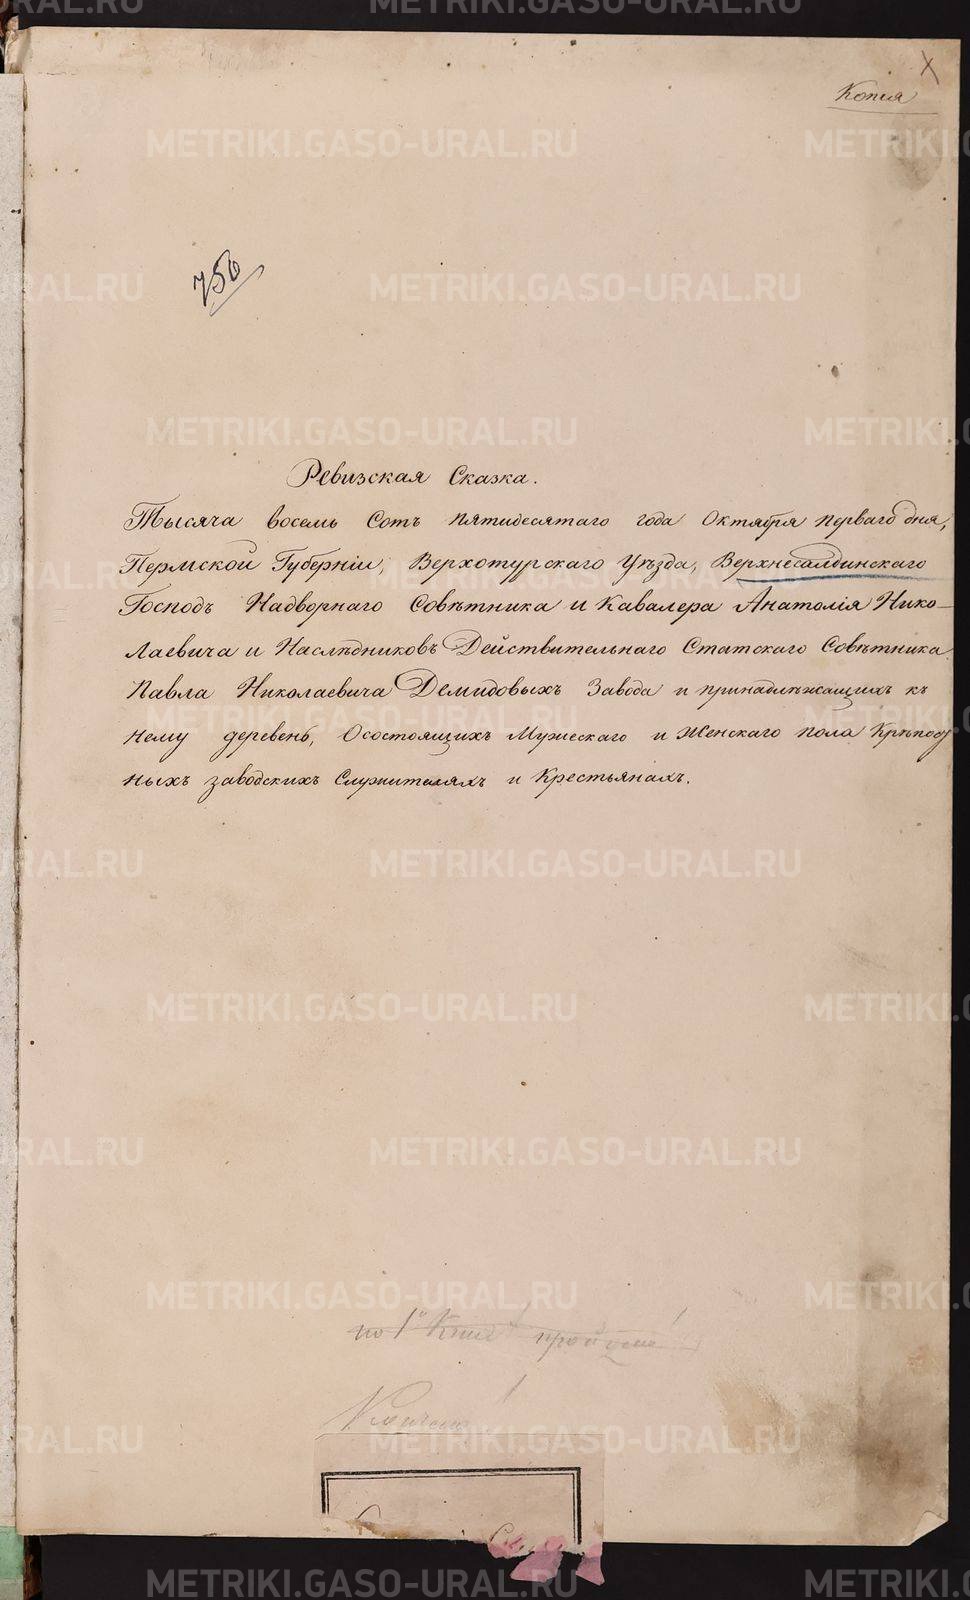 Копія
750
Ревизская Сказка.
Тысяча восемь Сотъ пятидесятаго года Октября перваго дня,
Пермской Губерніи, Верхотурскаго Уѣзда, Верхнесалдинскаго
Господъ Надворнаго Совѣтника и Кавалера Анатолія Нико-
лаевича и Наслѣдниковъ Действительнаго Статскаго Совѣтника
Павла Николаевича Демидовыхъ Завода и принадлѣжащихъ къ
нему деревень, О состоящихъ Мужескаго и Женскаго пола Крѣпост
ныхъ заводскихъ Служителяхъ и Крестьянахъ.
по 1й
METRIKI.GASO-URAL.RU